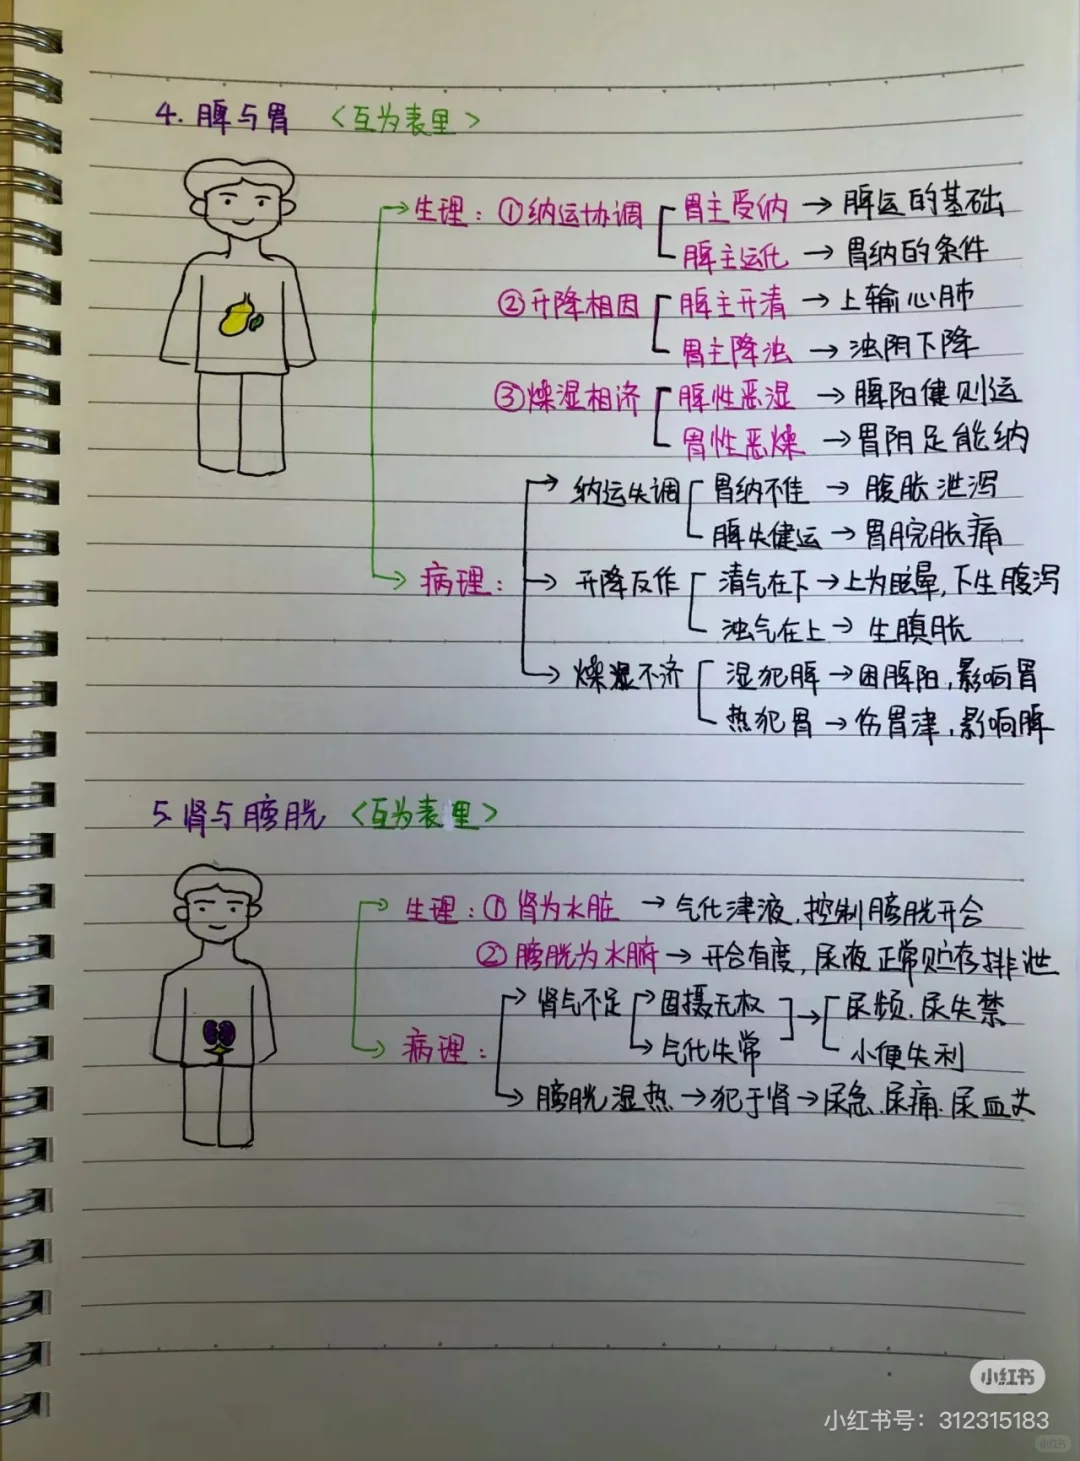 4. 脾与胃 <互为表里>
生理：①纳运协调 胃主受纳 → 脾运的基础
脾主运化 → 胃纳的条件
②升降相因 脾主升清 → 上输心肺
胃主降浊 → 浊阴下降
③燥湿相济 脾性恶湿 → 脾阳健则运
胃性恶燥 → 胃阴足能纳
纳运失调 胃纳不佳 → 腹胀泄泻
脾失健运 → 胃脘胀痛
病理： 升降反作 清气在下 → 上为眩晕，下生腹泻
浊气在上 → 生䐜胀
燥湿不济 湿犯脾 → 困脾阳，影响胃
热犯胃 → 伤胃津，影响脾
5. 肾与膀胱 <互为表里>
生理：①肾为水脏 → 气化津液，控制膀胱开合
②膀胱为水腑 → 开合有度，尿液正常贮存排泄
肾气不足 → 固摄无权 → 尿频、尿失禁
病理： → 气化失常 小便失利
膀胱湿热 → 犯于肾 → 尿急、尿痛、尿血
小红书
小红书号：312315183
小红书